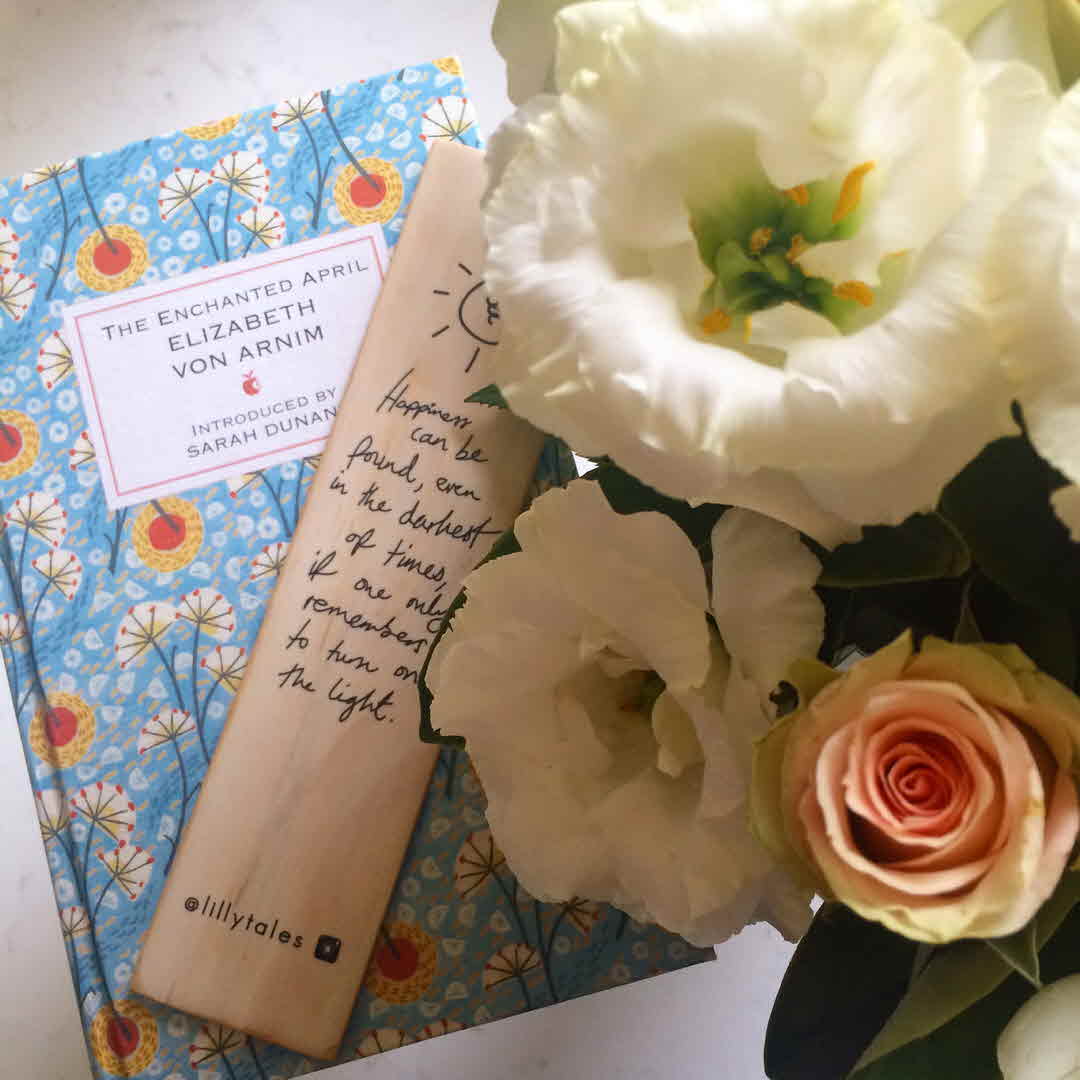 THE ENCHANTED APRIL
ELIZABETH
VON ARNIM
INTRODUCED BY
SARAH DUNAN
Happiness
can be
found, even
in the darkest
of times,
if one only
remembers
to turn on
the light.
@lillytales